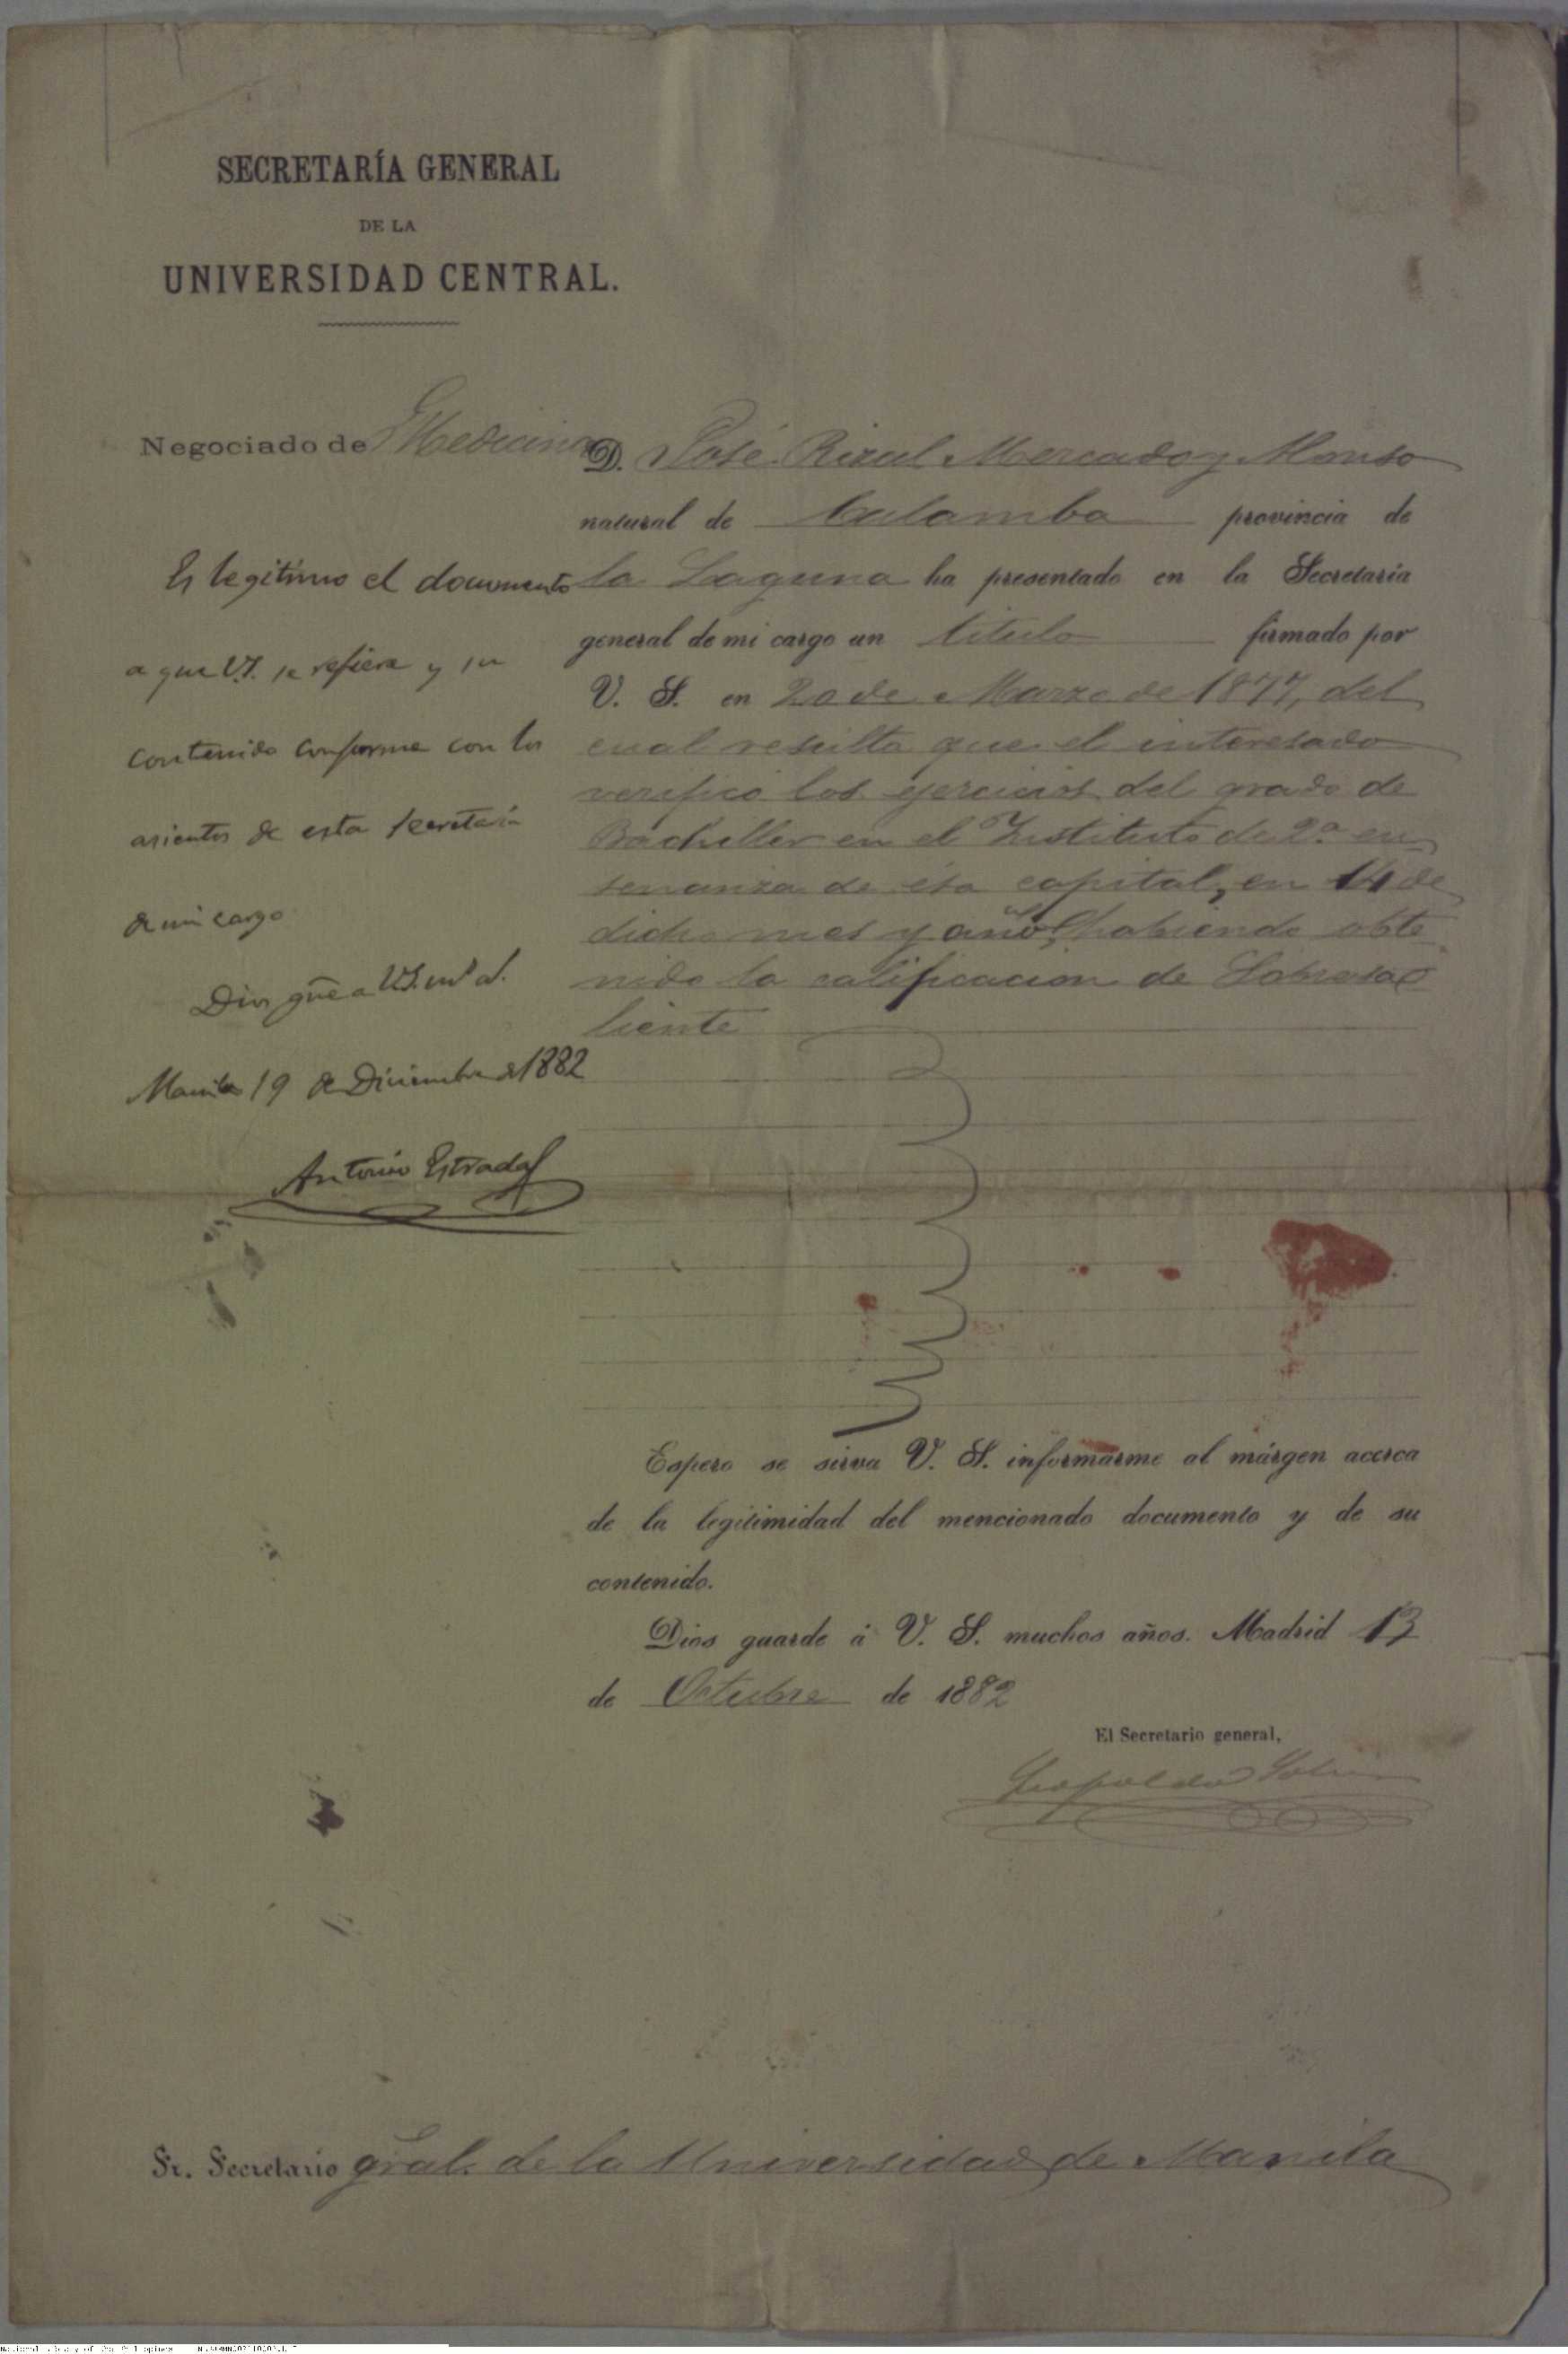 SECRETARÍA GENERAL
DE LA
UNIVERSIDAD CENTRAL.
Negociado de Medicina
Es legitimo el documento
a que V.S. se refiere y su
contenido conforme con los
asientos de esta secretaria
de mi cargo
Dios gūe a V.S. ms. as.
Manila 19 de Diciembre de 1882
Antonio Estrada
D. José Rizal Mercado y Alonso
natural de Calamba provincia de
la Laguna ha presentado en la Secretaría
general de mi cargo un título firmado por
V. S. en 20 de Marzo de 1877, del
cual resulta que el interesado
verificó los ejercicios del grado de
Bachiller en el Instituto de 2.a en
senanza de ésa capital, en 14 de
dicho mes y año, habiendo obte
nido la calificacion de Sobresa
liente
Espero se sirva V. S. informarme al márgen acerca
de la legitimidad del mencionado documento y de su
contenido.
Dios guarde á V. S. muchos años. Madrid 13
de Octubre de 1882
El Secretario general,
Leopoldo
Sr. Secretario gral. de la Universidad de Manila